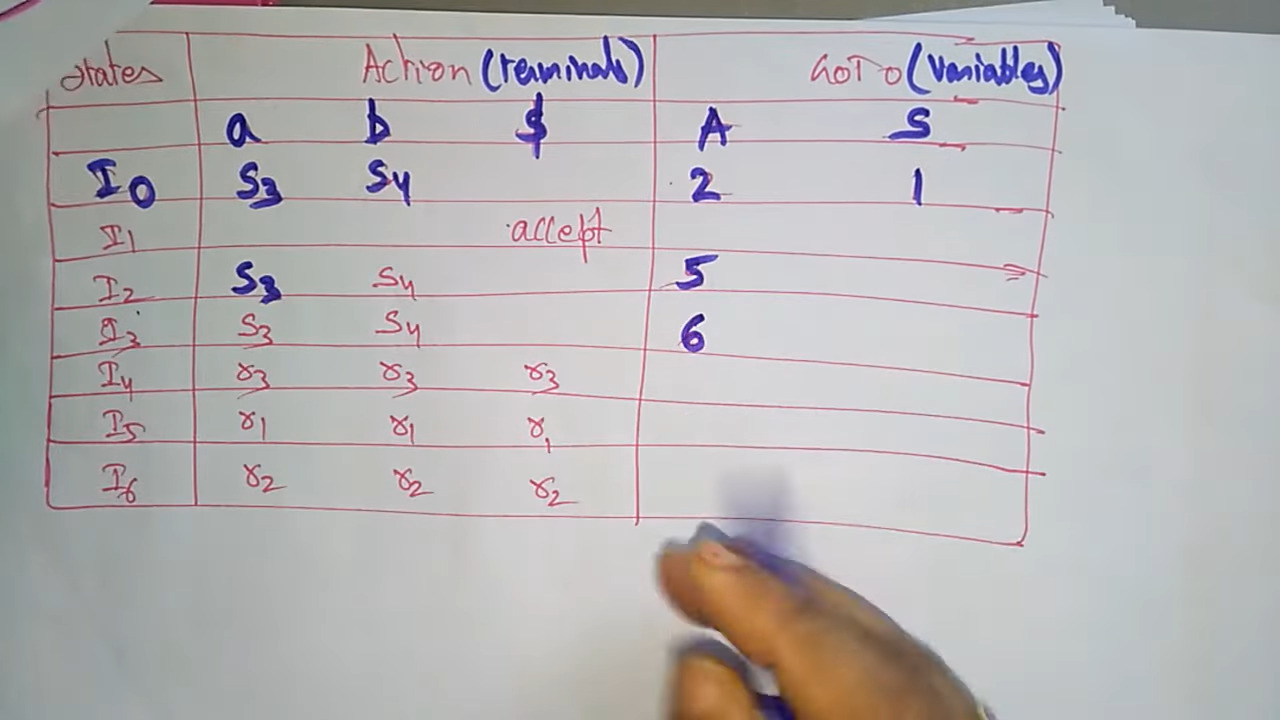 States Action (terminals) GOTO (variables)
a b $ A S
I0 S3 S4 2 1
I1 accept
I2 S3 S4 5
I3 S3 S4 6
I4 r3 r3 r3
I5 r1 r1 r1
I6 r2 r2 r2